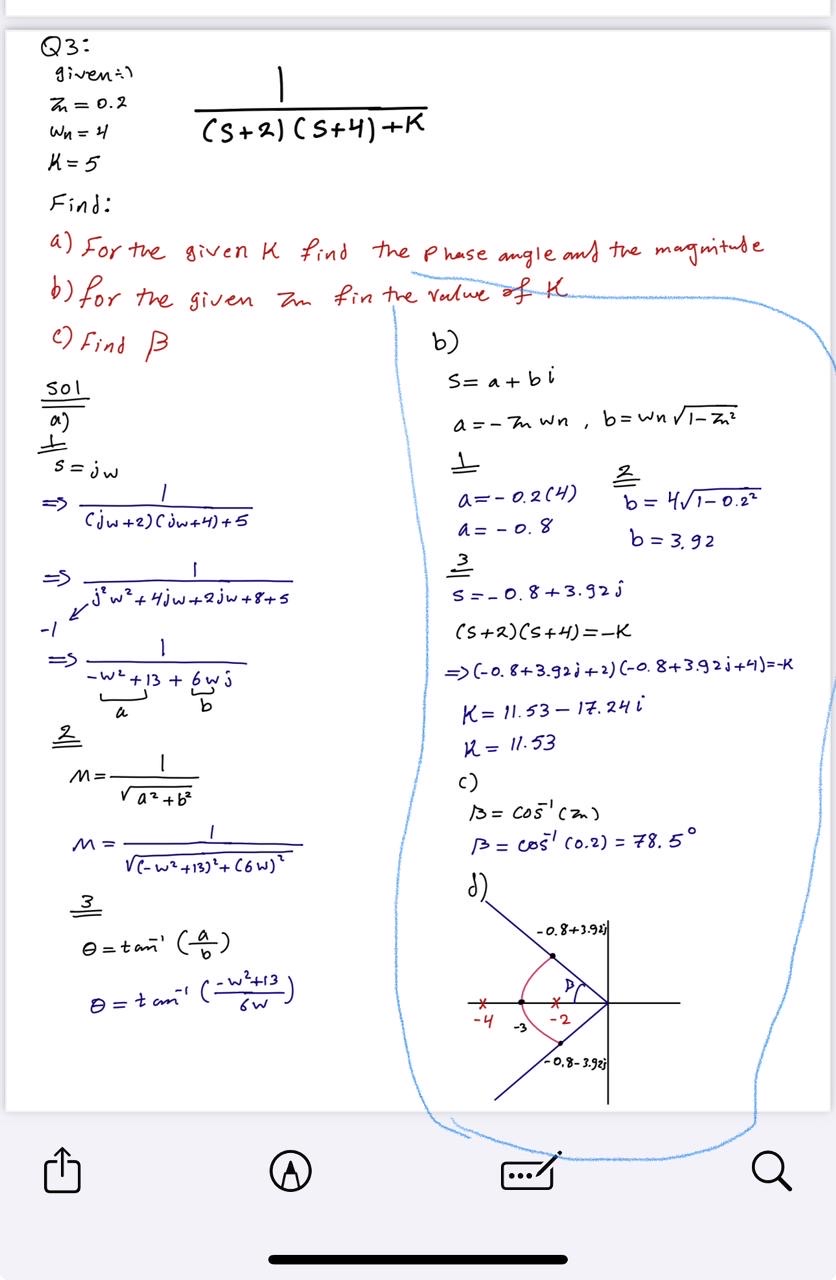 Q3:
given:-)
Zη = 0.2
Wn = 4
K = 5
1
(S+2)(S+4)+K
Find:
a) For the given K find the phase angle and the magnitude
b) for the given Zη fin the value of K
c) Find β
Sol
a)
1
s = jw
=> 1
(jw+2)(jw+4)+5
=> 1
j²w²+4jw+2jw+8+5
-1
=> 1
-w²+13 + 6wj
a b
2
M = 1
√a²+b²
M = 1
√(-w²+13)²+(6w)²
3
θ = tan⁻¹(a/b)
θ = tan⁻¹(-w²+13/6w)
b)
S = a + bi
a = -Zη wn , b = wn√1-Zη²
1
a = -0.2(4)
a = -0.8
2
b = 4√1-0.2²
b = 3.92
3
S = -0.8+3.92j
(S+2)(S+4)=-K
=>(-0.8+3.92j+2)(-0.8+3.92j+4)=-K
K = 11.53 - 17.24i
K = 11.53
c)
β = cos⁻¹(Zη)
β = cos⁻¹(0.2) = 78.5°
d)
-0.8+3.92j
β
-4 -3 -2
-0.8-3.92j